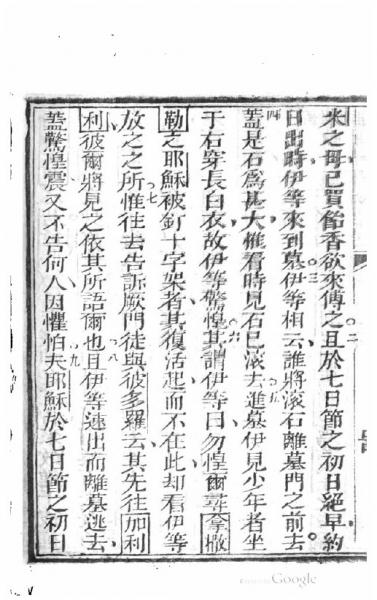 米之母已買飴香欲來傅之且於七日節之初日絕早約
日出時伊等來到墓伊等相云誰將滾石離墓門之前去
蓋是石為甚大惟看時見石已滾去進墓伊見少年者坐
于右穿長白衣故伊等驚惶其謂伊等曰勿惶爾尋拿撒
勒之耶穌被釘十字架者其復活起而不在此却看伊等
放之之所惟往去告訴厥門徒與彼多羅云其先往加利
利彼爾將見之依其所語爾也且伊等速出而離墓逃去
蓋驚惶震又不告何人因懼怕夫耶穌於七日節之初日
Google